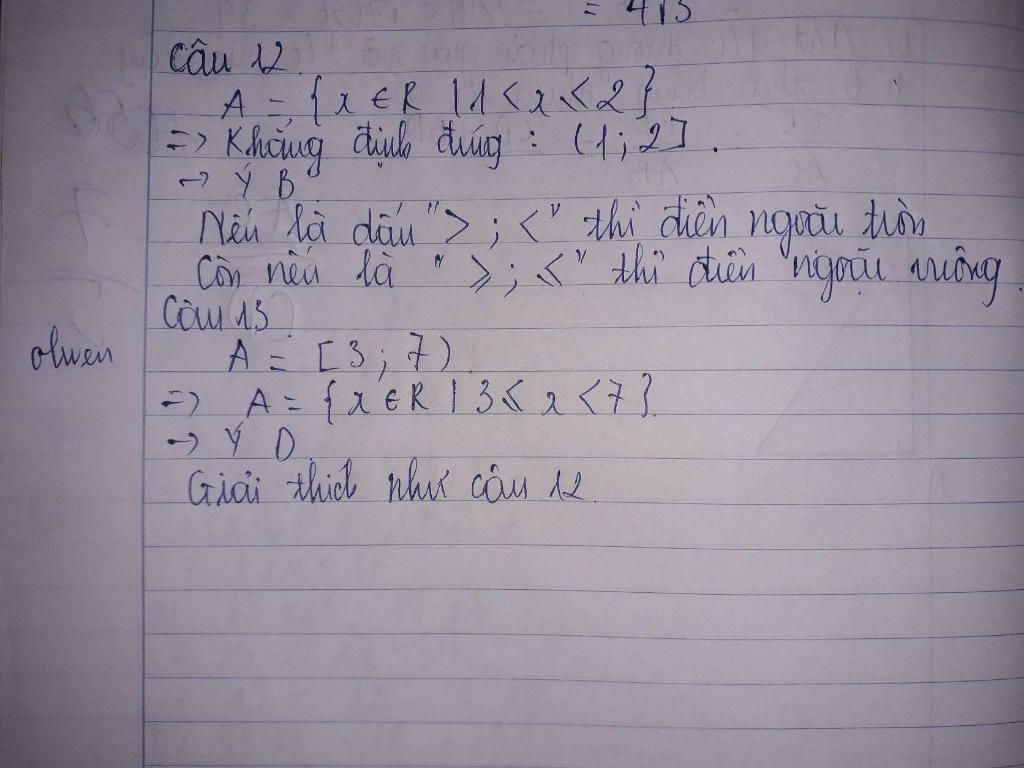 = 4√3
Câu 12.
A = { x ∈ R | 1 < x ≤ 2 }
=> Khẳng định đúng : (1 ; 2] .
-> Ý B
Nếu là dấu " > ; < " thì điền ngoặc tròn
Còn nếu là " ≥ ; ≤ " thì điền ngoặc vuông .
Câu 13
olwen
A = [ 3 ; 7 )
=> A = { x ∈ R | 3 ≤ x < 7 }.
-> Ý D
Giải thích như câu 12.